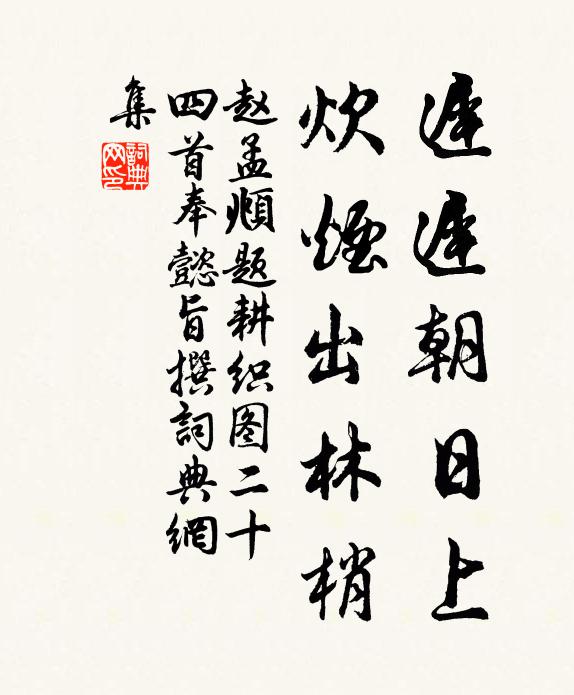 遲遲朝日上
炊煙出林梢
赵孟頫题耕织图二十
四首奉懿旨撰詞典網
集
詞典
网印